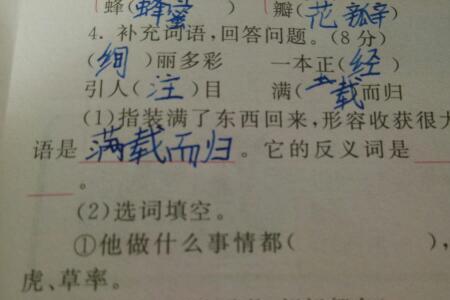 蜂(蜂蜜) 瓣(花瓣)
4. 补充词语,回答问题。(8分)
(绚)丽多彩 一本正(经)
引人(注)目 满(载)而归
(1)指装满了东西回来,形容收获很大
语是 满载而归。它的反义词是
。
(2)选词填空。
①他做什么事情都( ),
虎、草率。